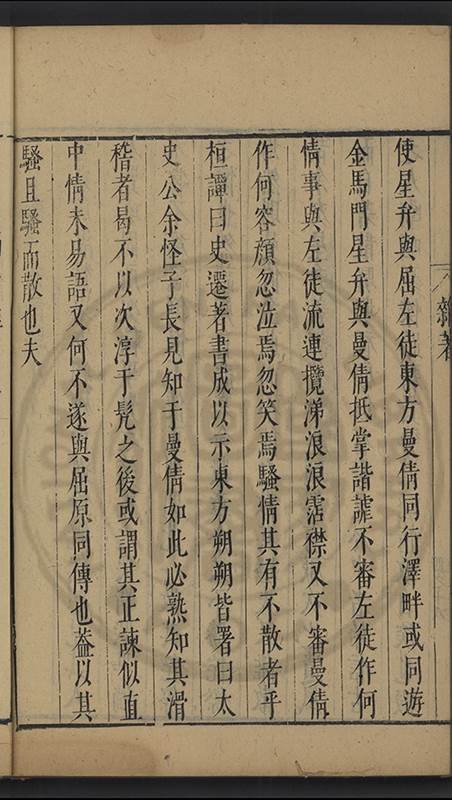 雜著
使星弁與屈左徒東方曼倩同行澤畔或同遊
金馬門星弁與曼倩抵掌諧謔不審左徒作何
情事與左徒流連攬涕浪浪霑襟又不審曼倩
作何容顏忽泣焉忽笑焉騷情其有不散者乎
桓譚曰史遷著書成以示東方朔朔皆署曰太
史公余怪子長見知于曼倩如此必熟知其滑
稽者曷不以次淳于髡之後或謂其正諫似直
中情未易語又何不遂與屈原同傳也葢以其
騷且騷而散也夫